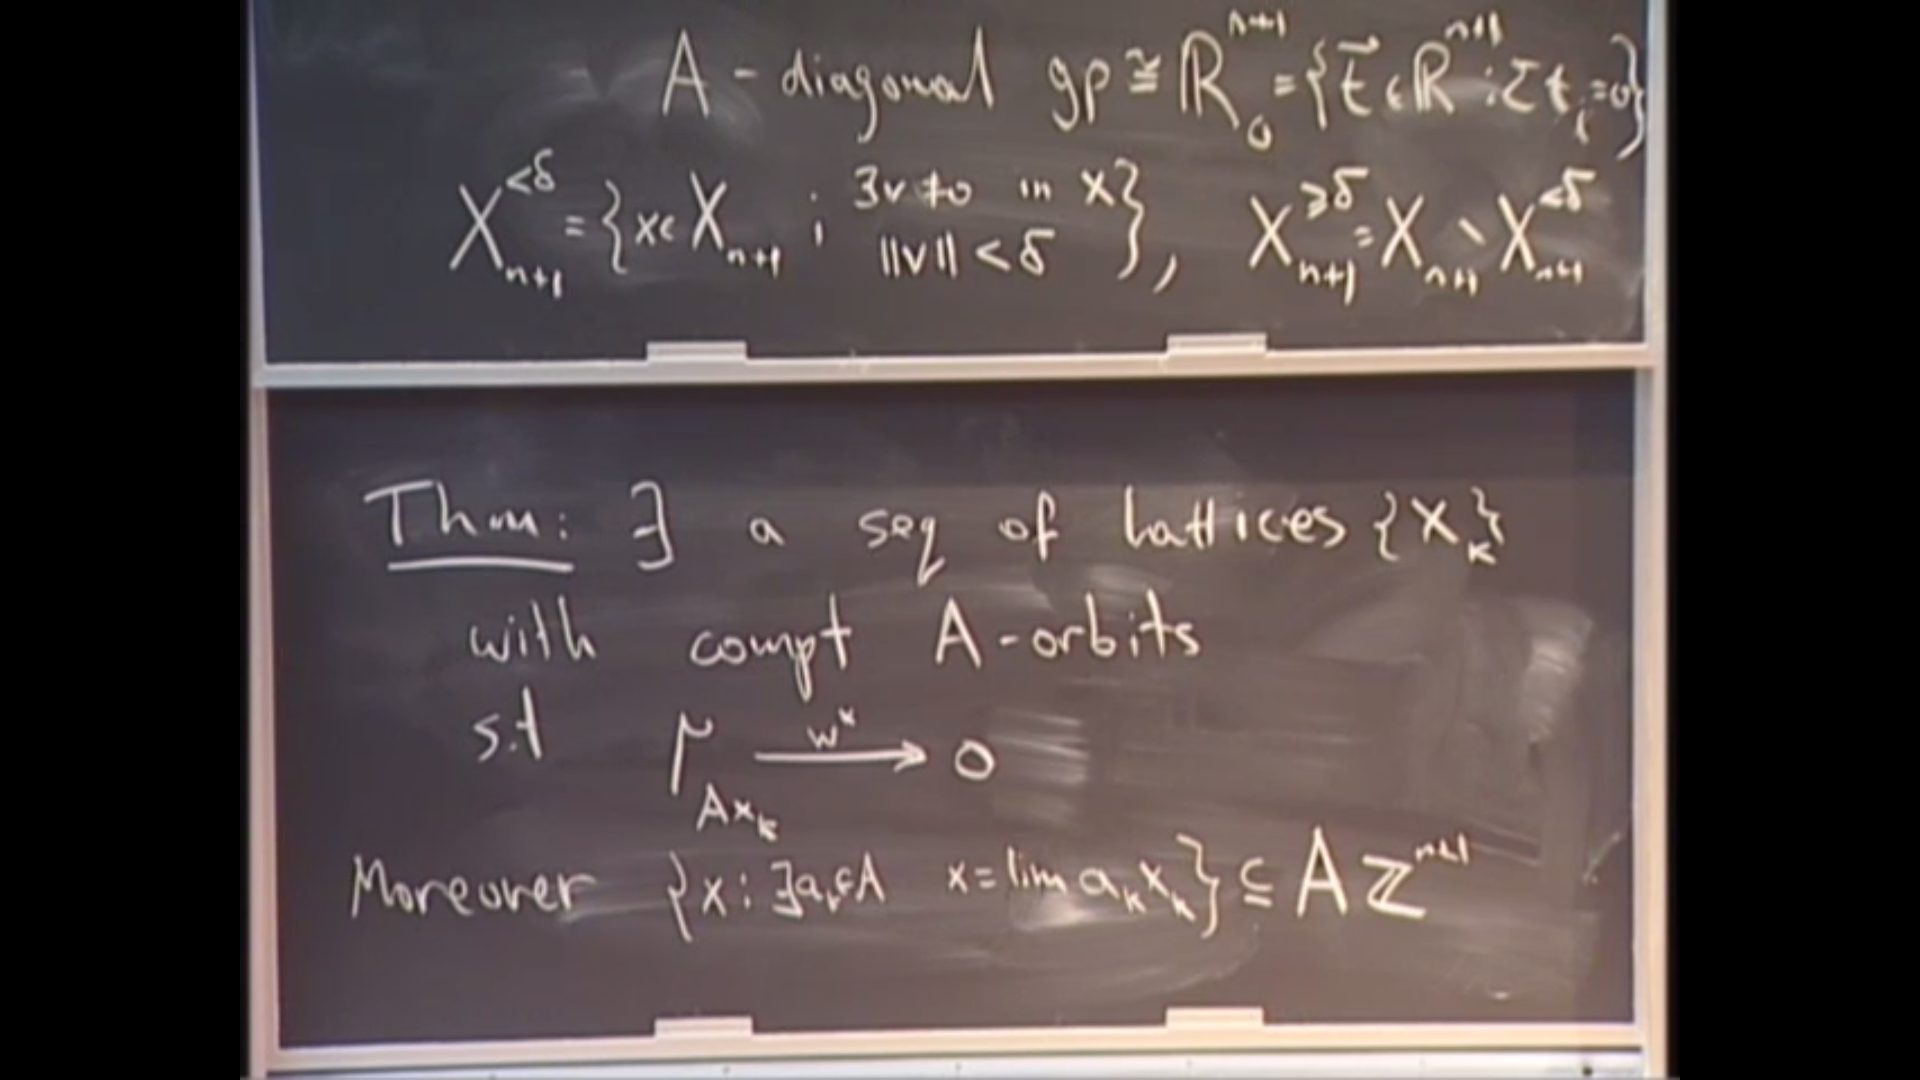 A - diagonal gp ≅ ℝ₀ⁿ⁺¹ = {t⃗ ∈ ℝⁿ⁺¹ : Σ tᵢ = 0}
X_{n+1}^{<δ} = {x ∈ X_{n+1} ; ∃v ≠ 0 in x ‖v‖ < δ}, X_{n+1}^{≥δ} = X_{n+1} ∖ X_{n+1}^{<δ}
Thm: ∃ a seq of lattices {x_k}
with compt A-orbits
s.t μ_{Ax_k} →^{w*} 0
Moreover {x : ∃a_k ∈ A x = lim a_k x_k} ⊆ A ℤⁿ⁺¹